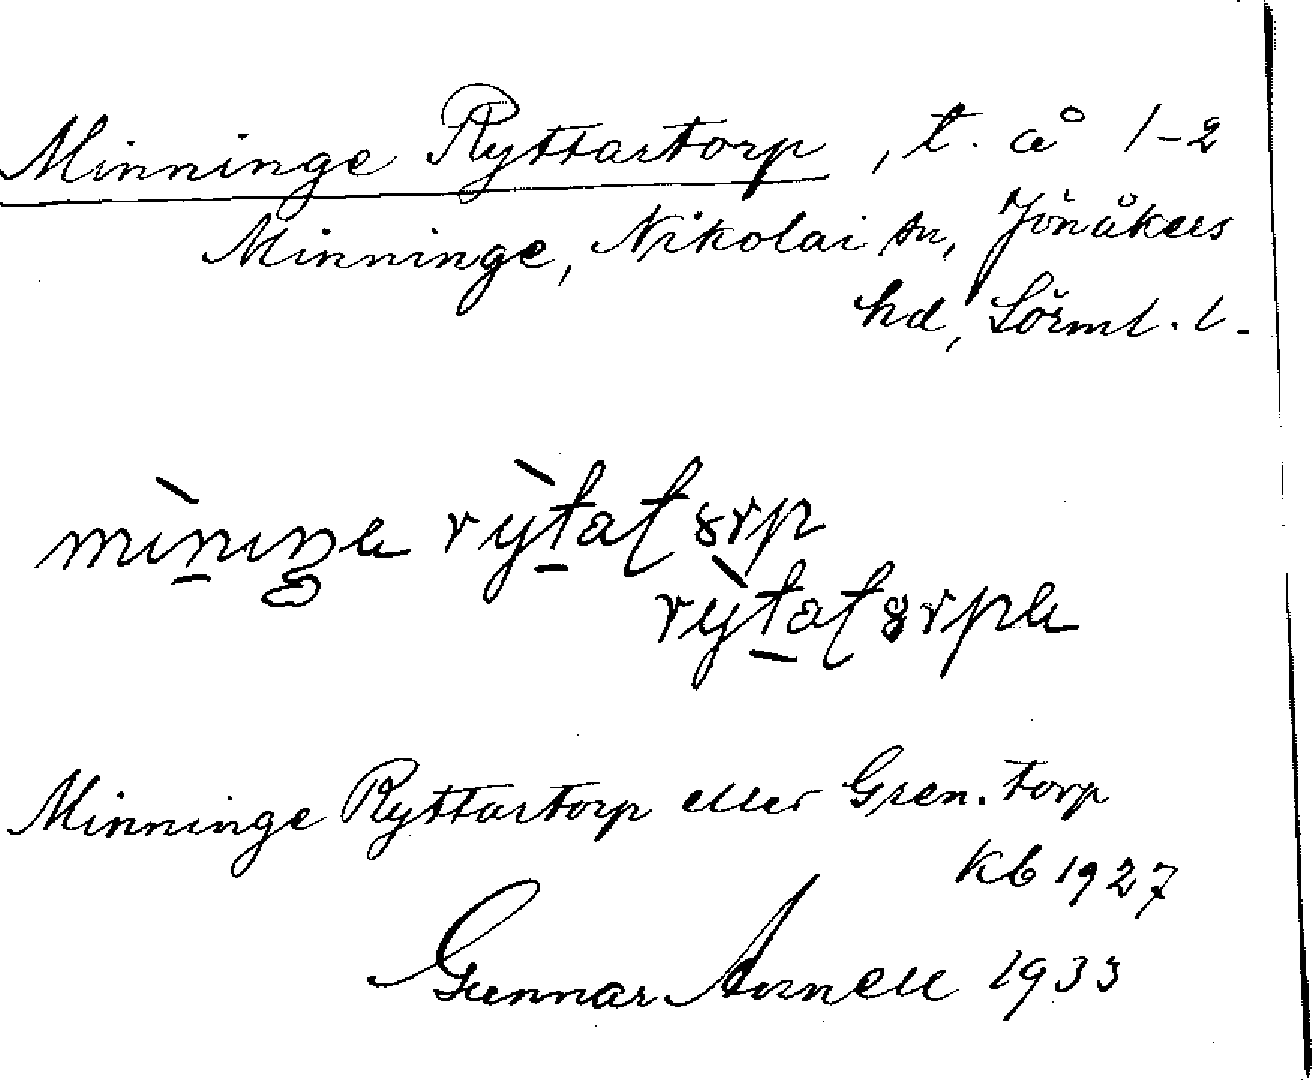 Minninge Ryttartorp, t. å 1-2
Minninge, Nikolai sn, Jönåkers
hd, Sörml. l.
Minninge Ryttartorp eller Gren. torp
Kb 1927
Gunnar Arnell 1933